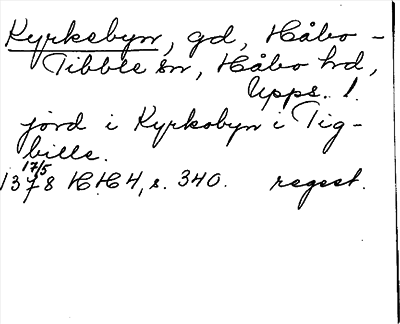 Kyrkebyn, gd, Håbo-
Tibble sn, Håbo hd,
Upps. l.
jord i Kyrkobyn i Tig-
bille.
17/5
1378 HH 4, s. 340. regest.